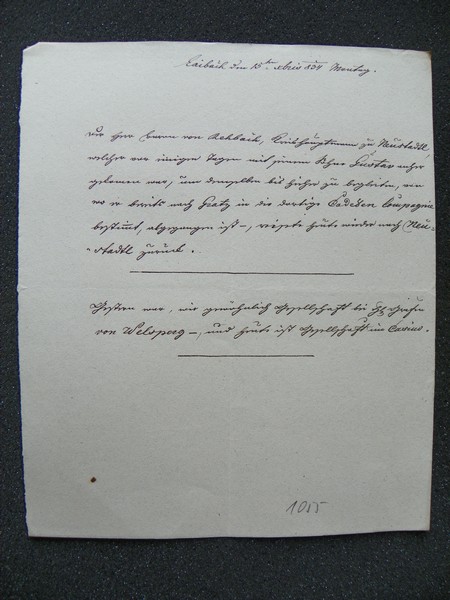 Laibach den 15ten xbris 834 Montag.
Der Herr Baron von Rehbach, Kreishauptmann zu Neustadtl,
welcher vor einigen Tagen mit seinem Sohne Gustav anher
gekomen war, um denselben bis hieher zu begleiten, von
wo er bereits nach Gratz in die dortige Cadeten Compagnie
bestimt, abgegangen ist –, reisete heute wieder nach Neu-
stadtl zurück.
Gestern war, wie gewöhnlich Gesellschaft bei Grafen
von Welsperg –, und heute ist Gesellschaft im Casino.
1055